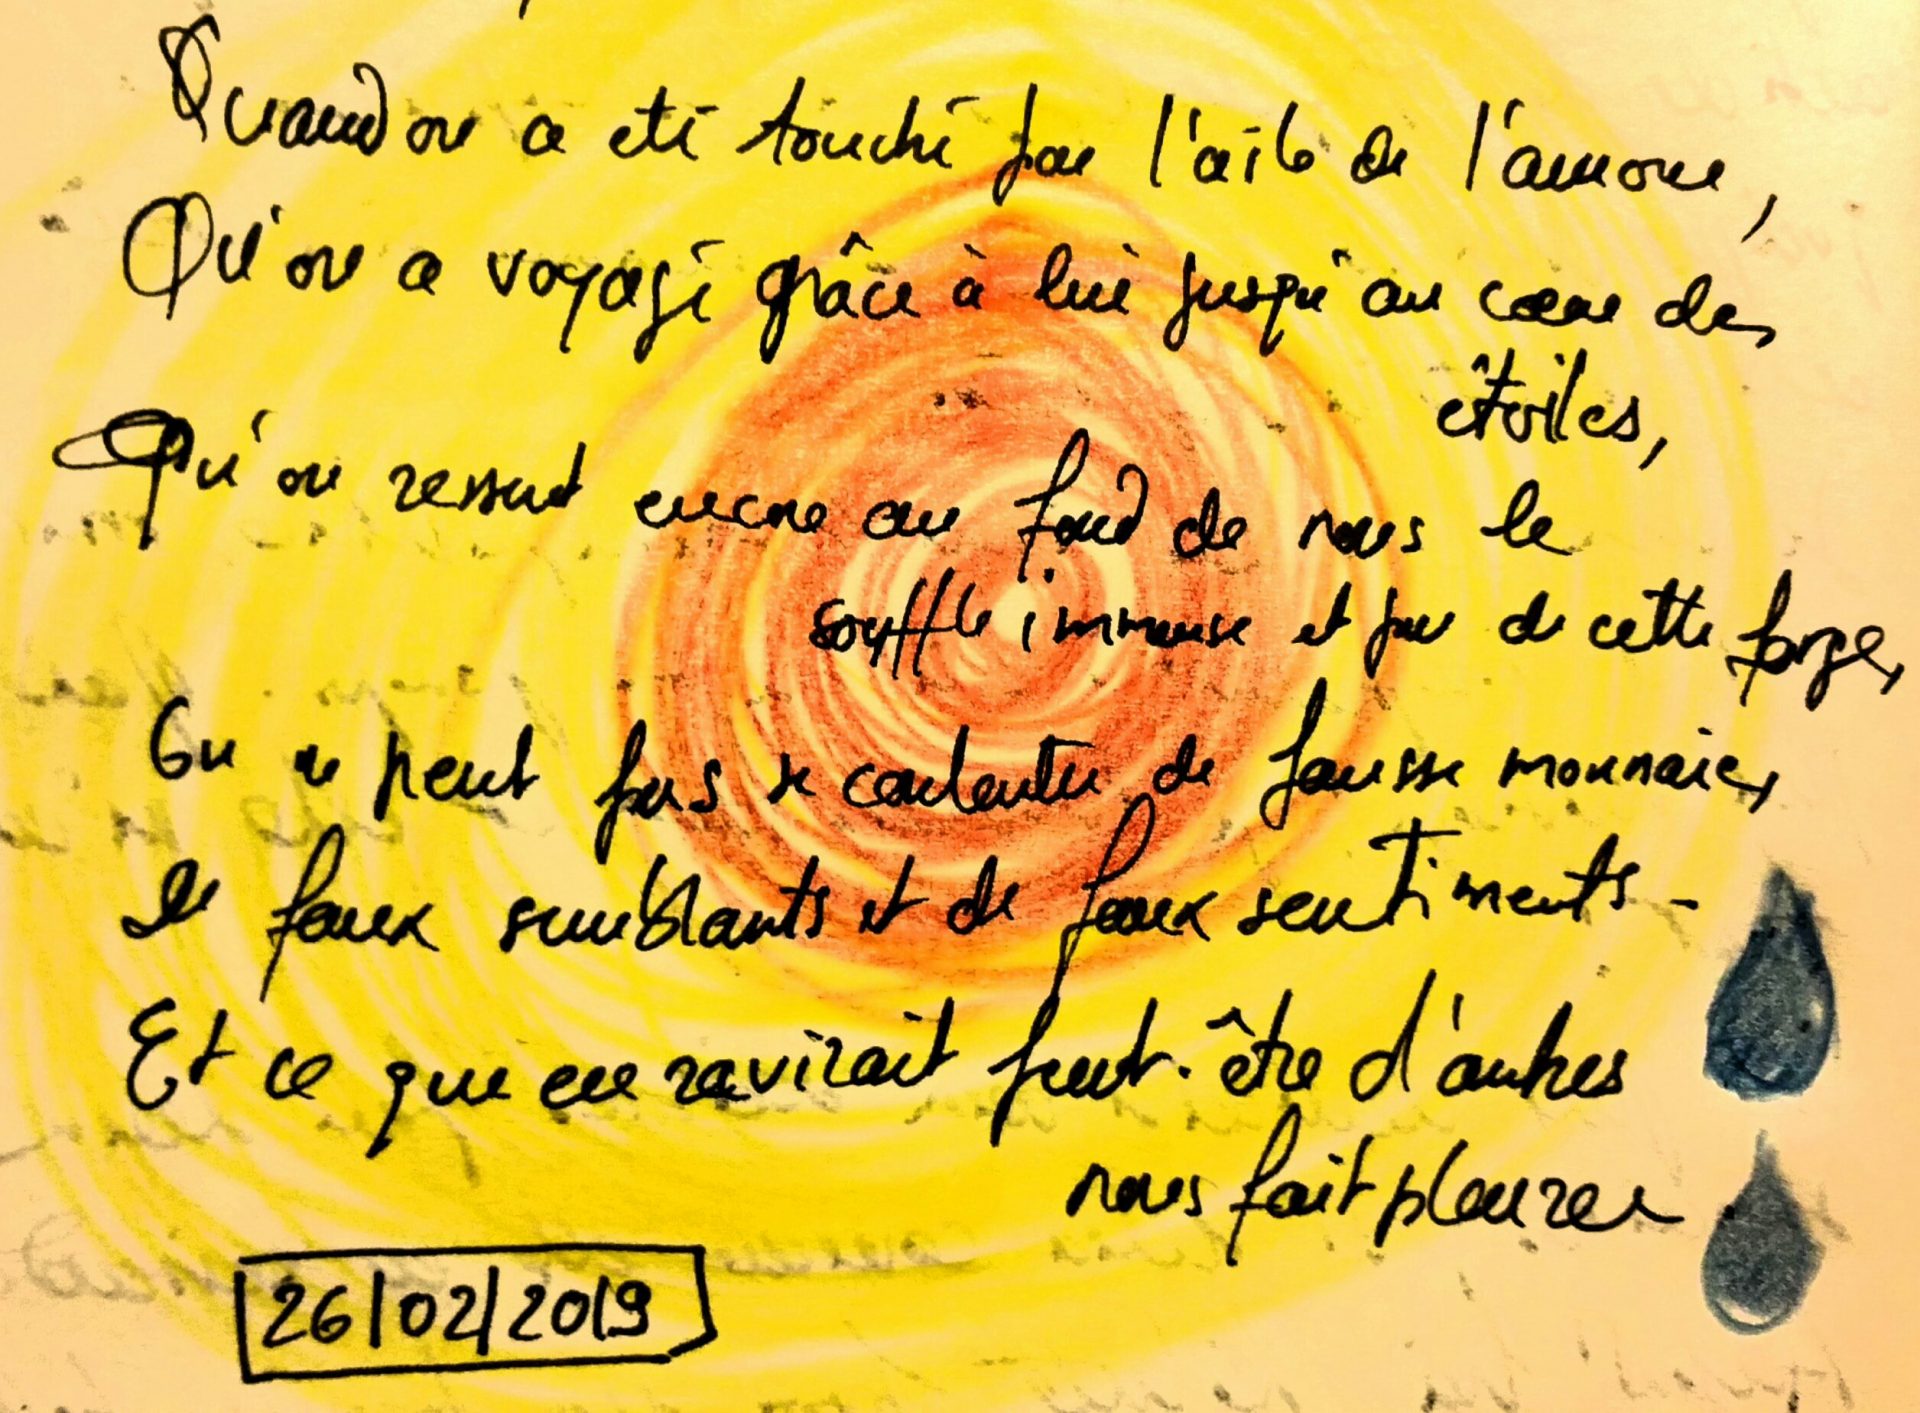 Quand on a été touché par l'aile de l'amour,
Qu'on a voyagé grâce à lui jusqu'au cœur des
étoiles,
Qu'on ressent encore au fond de nous le
souffle immense et pur de cette forge,
On ne peut pas se contenter de fausse monnaie,
de faux semblants et de faux sentiments -
Et ce que en ravirait peut-être d'autres
nous fait pleurer
26/02/2019